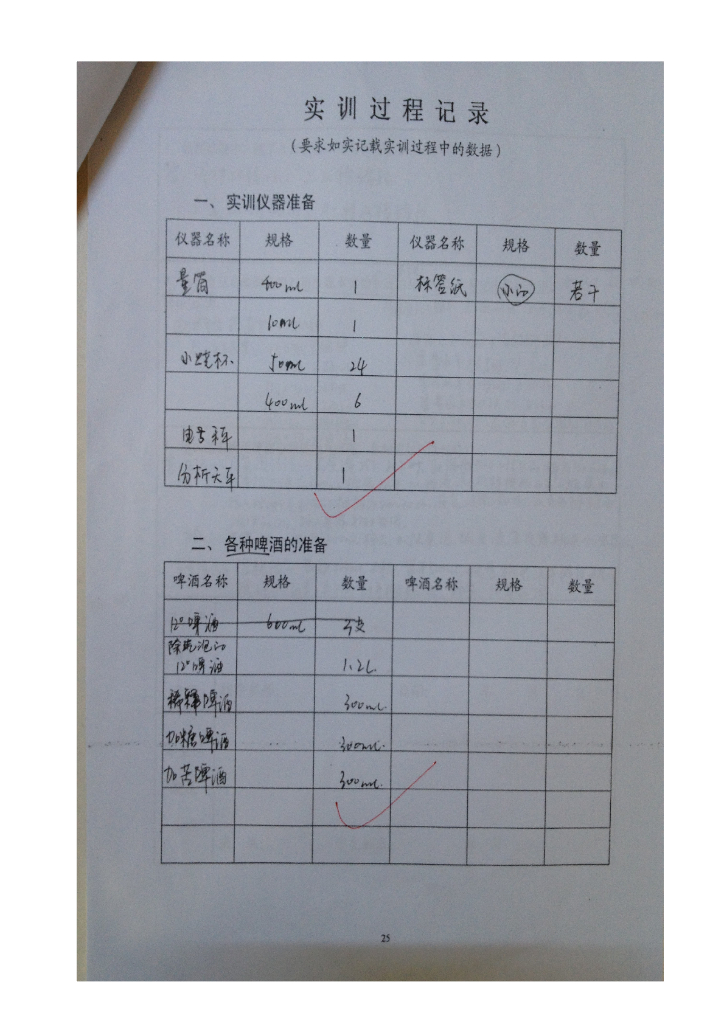 实训过程记录
(要求如实记载实训过程中的数据)
一、实训仪器准备
仪器名称 规格 数量 仪器名称 规格 数量
量筒 400ml 1 标签纸 小的 若干
10ml 1
小烧杯 50ml 24
400ml 6
电子秤 1
分析天平 1
二、各种啤酒的准备
啤酒名称 规格 数量 啤酒名称 规格 数量
12°啤酒 600ml
除气泡的
12°啤酒 1.2L
稀释啤酒 300ml
加糖啤酒 300ml
加苦啤酒 300ml
25